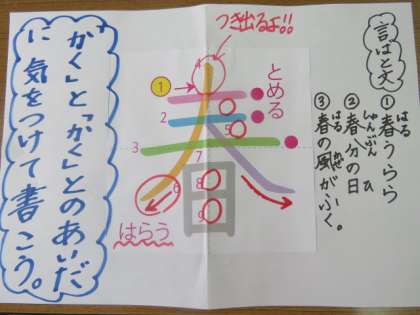 言はと文
①春うらら
はる
②春分の日
しゅんぶん ひ
③春の風がふく。
はる かぜ
つき出るよ!!
とめる
はらう
1
2
3
4
5
6
7
8
9
「かく」と「かく」とのあいだ
に気をつけて書こう。